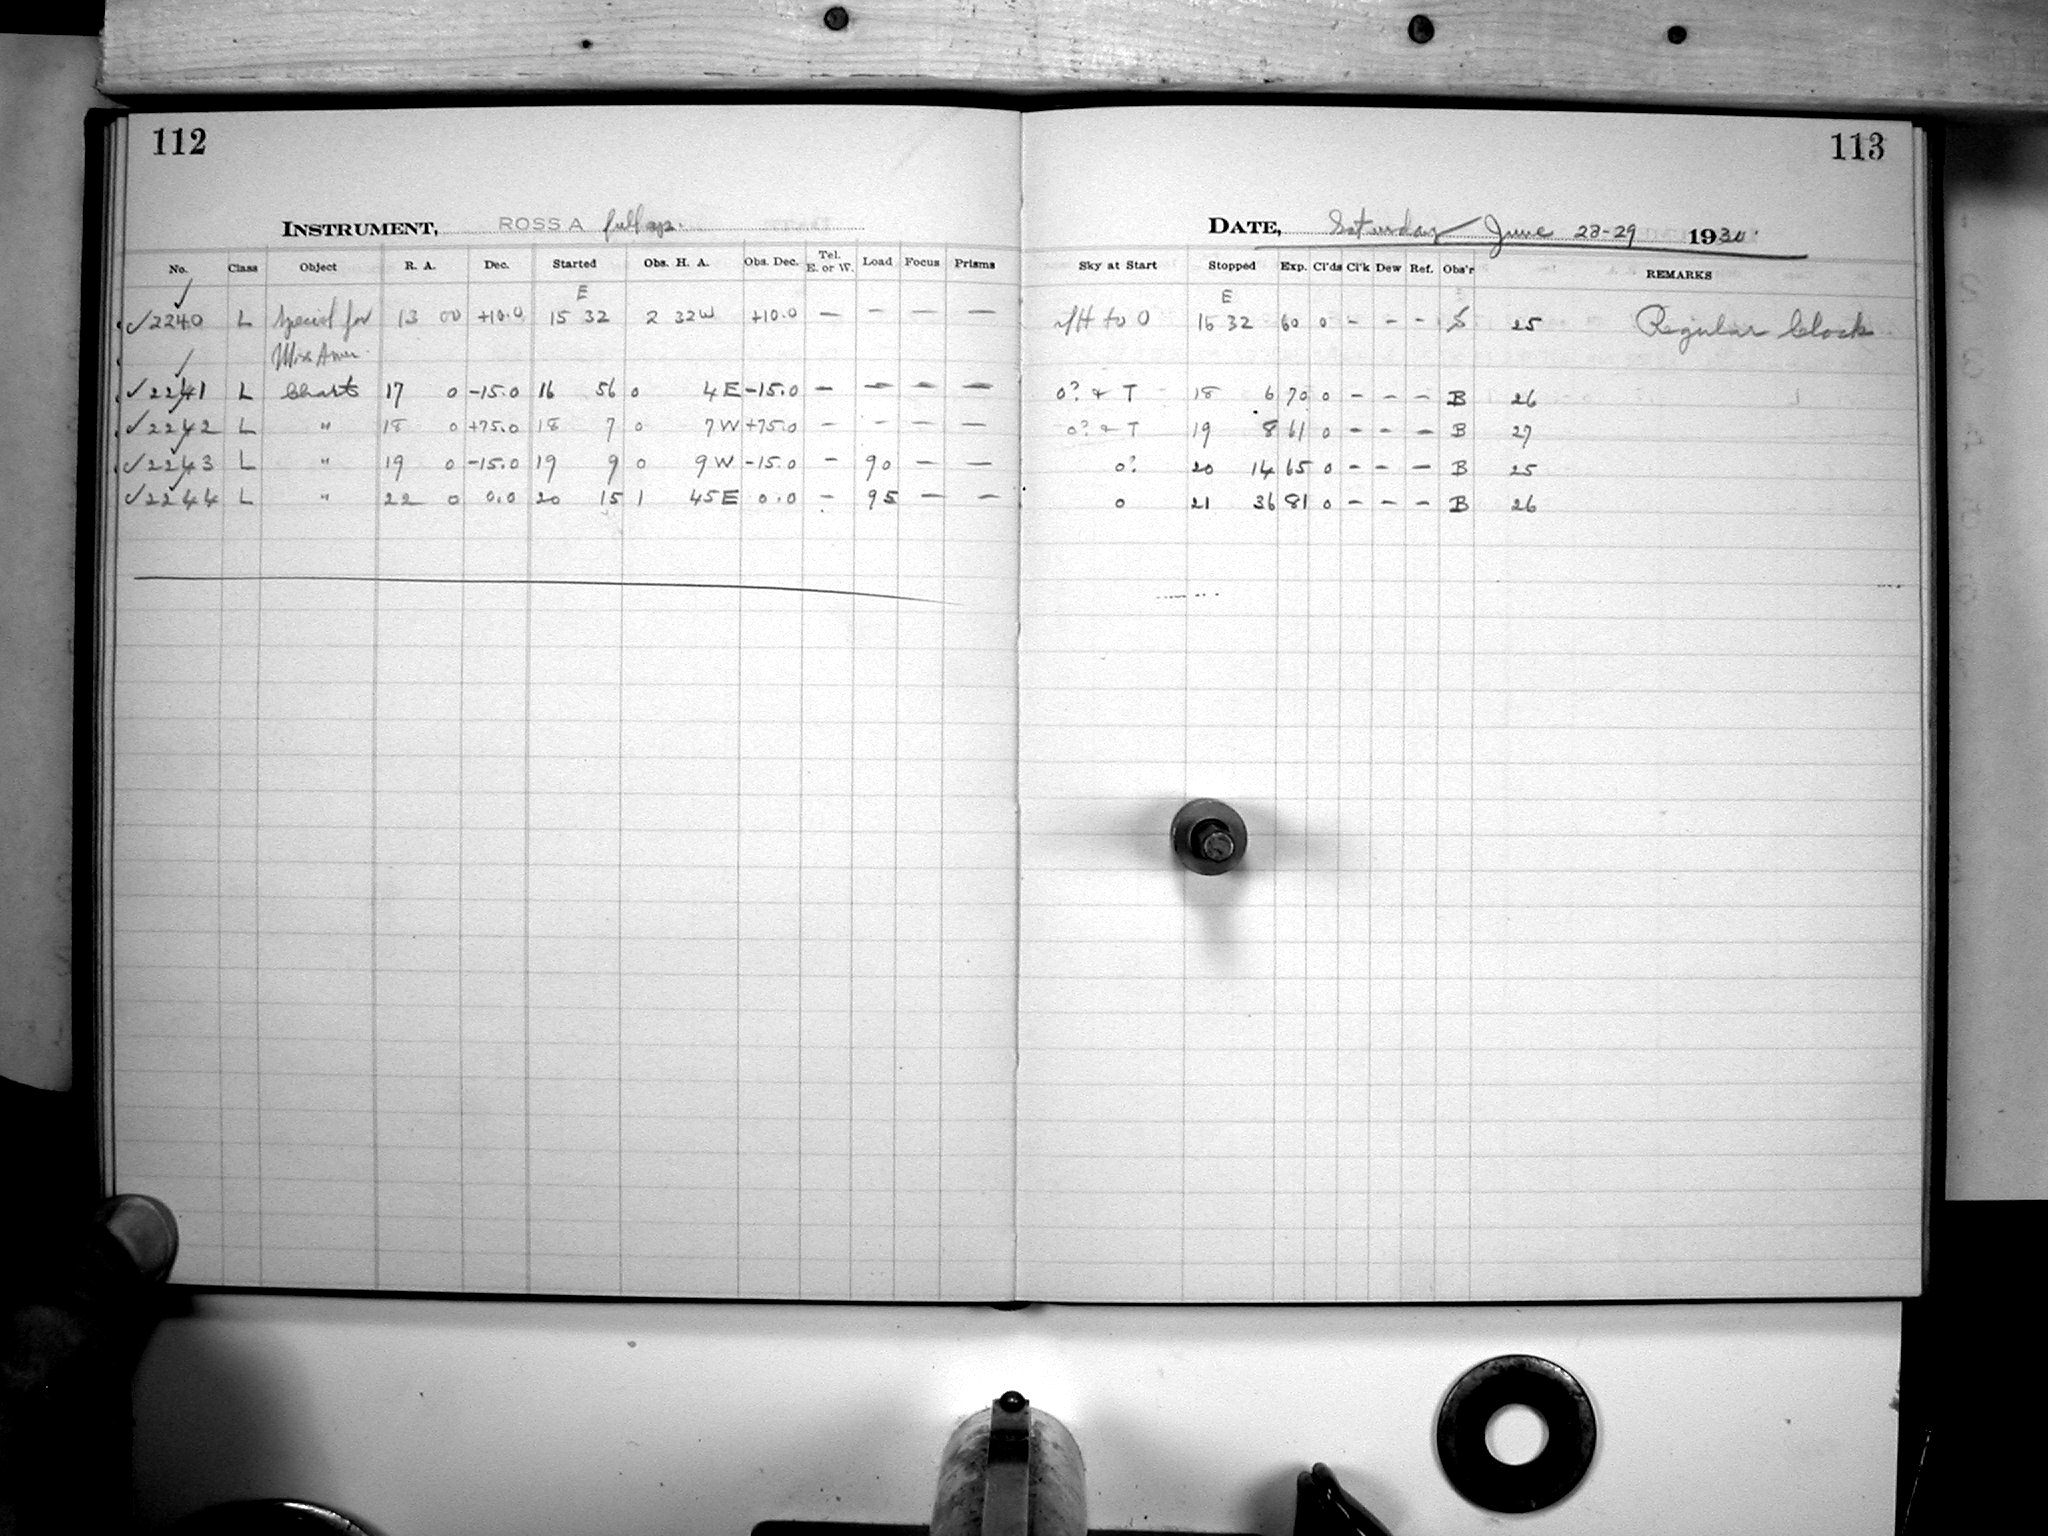 112
113
INSTRUMENT, ROSS A full ap.
DATE, Saturday June 28-29 1930.
No. Class Object R. A. Dec. Started Obs. H. A. Obs. Dec. Tel. E. or W. Load Focus Prisms
Sky at Start Stopped Exp. Cl'ds Cl'k Dew Ref. Obs'r REMARKS
E E
✓2240 L Special for 13 00 +10.0 15 32 2 32W +10.0 — — — — to 0 16 32 60 0 - - - S 25 Regular Clock
Miss
✓2241 L Charts 17 0 -15.0 16 56 0 4E -15.0 — — — — 0? & T 18 6 70 0 - - - B 26
✓2242 L " 18 0 +75.0 18 7 0 7W +75.0 - - — — 0? & T 19 8 61 0 - - — B 27
✓2243 L " 19 0 -15.0 19 9 0 9W -15.0 - 90 — — 0? 20 14 65 0 - - — B 25
✓2244 L " 22 0 0.0 20 15 1 45E 0.0 - 95 — — 0 21 36 81 0 - - - B 26